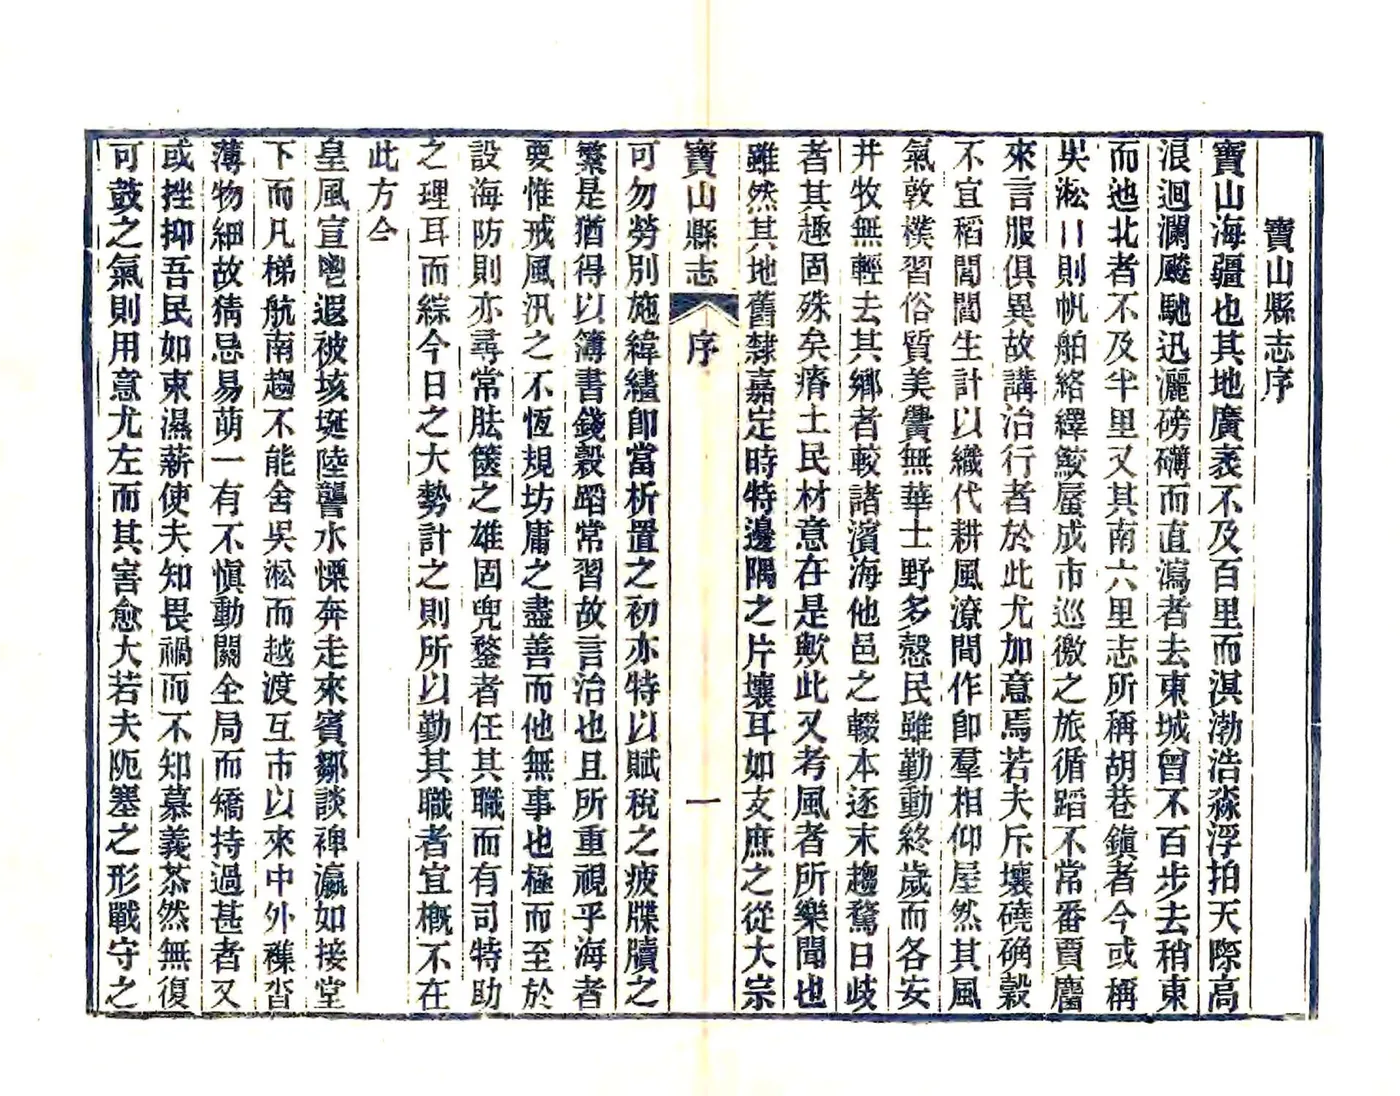 寶山縣志序
寶山海疆也其地廣袤不及百里而淇渤浩淼浮拍天際高
浪迴瀾颷馳迅灑磅礴而直瀉者去東城曾不百步去稍東
而迆北者不及半里又其南六里志所稱胡巷鎮者今或稱
吳淞口則帆舶絡繹鮫蜃成市巡徼之旅循蹈不常番賈麕
來言服俱異故講治行者於此尤加意焉若夫斥壤磽确穀
不宜稻閭閻生計以織代耕風潦間作即羣相仰屋然其風
氣敦樸習俗質美黌無華士野多愨民雖勤動終歲而各安
井牧無輕去其鄉者較諸濱海他邑之輟本逐末趨騖日歧
者其趣固殊矣瘠土民材意在是歟此又考風者所樂聞也
雖然其地舊隸嘉定時特邊隅之片壤耳如支庶之從大宗
寶山縣志
序
一
可勿勞別施緯繣即當析置之初亦特以賦稅之疲牒牘之
繁是猶得以簿書錢穀蹈常習故言治也且所重視乎海者
要惟戒風汛之不恆規坊庸之盡善而他無事也極而至於
設海防則亦尋常胠篋之雄固兜鍪者任其職而有司特助
之理耳而綜今日之大勢計之則所以勤其職者宜槪不在
此方今
皇風宣鬯遐被垓埏陸讋水慄奔走來賓鄒談裨瀛如接堂
下而凡梯航南趨不能舍吳淞而越渡互市以來中外襍沓
薄物細故猜忌易萌一有不慎動關全局而矯持過甚者又
或挫抑吾民如束濕薪使夫知畏禍而不知慕義苶然無復
可鼓之氣則用意尤左而其害愈大若夫阨塞之形戰守之